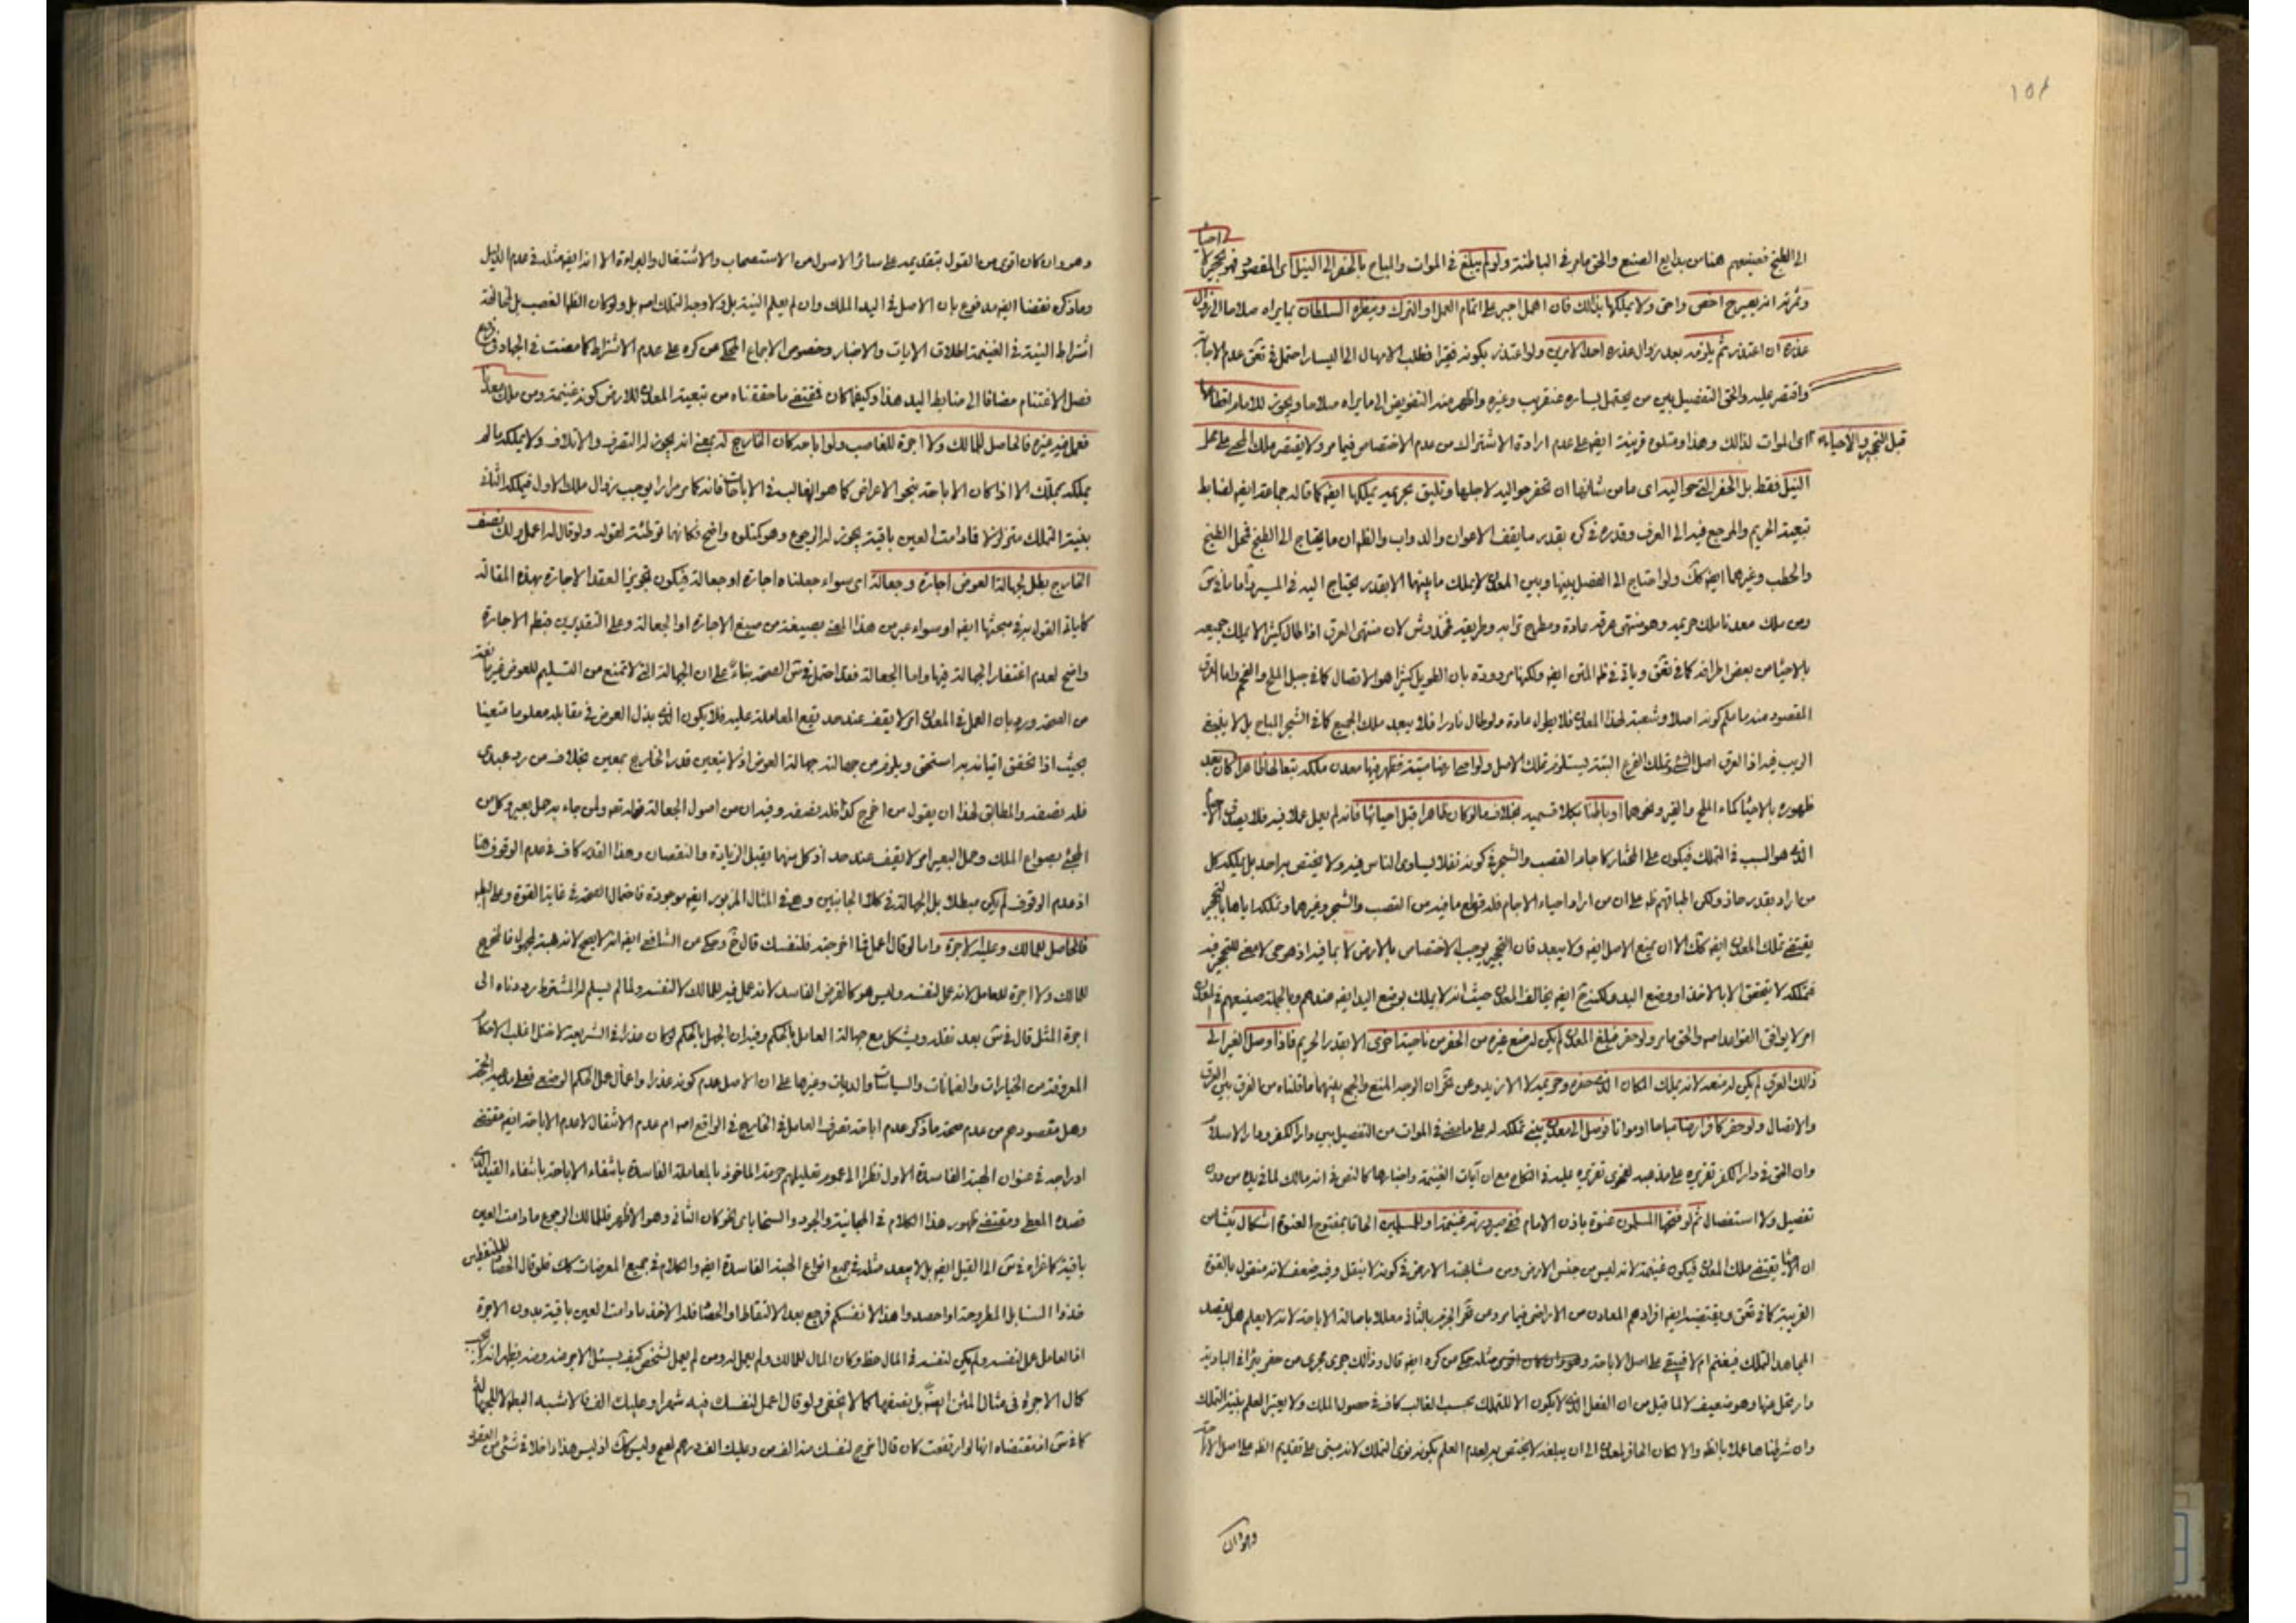 ١٥٨
لا احيا
الى الطبخ فصنيعهم هنا من بدايع الصنع والحق ما مر في الباطنة ولو لم يبلغ في الموات والمباح بالحفر الى النيل اى المقصود فهو تحجير
وثمرته انه يصير احق واحق ولا يملكها بذلك فان اهمل اجبر على اتمام العمل او الترك وينظره السلطان بما يراه صلاحا الى زوال
عذره ان اعتذر ثم يلزمه بعد زوال عذره احد الامرين ولو اعتذر بكونه فقيرا فطلب الامهال الى اليسار احتمل في تحق عدم الاجابة
واقتصر عليه والحق التفصيل بين من يحتمل يساره عنقريب وغيره واظهر منه التفويض الى ما يراه صلاحا ويجوز للامام اقطاعها
قبل التحجير والاحياء
اى الموات لذلك وهذا ومتلوه قرينة ايضا على عدم ارادة الاشتراك من عدم الاختصاص فيما مر ولا يقتصر ملك المحيى على محل
النيل فقط بل الحفر التي حواليه اى ما من شانها ان تحفر حواليه لاجلها وتليق بحريمه يملكها ايضا كما قاله جماعة ايضا لضابط
تبعية الحريم والمرجع فيه الى العرف وقدره في كرى بقدر ما يقف الاعوان والدواب والظ ان ما يحتاج الى الطبخ فمحل الطبخ
والحطب وغيرهما ايضا كك ولو احتاج الى الفصل بينها وبين المعدن لا يملك ما بينهما الا بقدر يحتاج اليه في المسير واما ما في س
ومن ملك معدنا ملك حريمه وهو منتهى عرقه عادة ومطرح ترابه وطريقه فمخدوش لان منتهى العرق اذا طال كثيرا لا يملك جميعه
بالاحياء من بعض اطرافه كما في تحق وياتي في ظ المتن ايضا ولكنها مردودة بان الطويل كثيرا هو الاتصال كما في جبل الملح والفحم واما العرق
المقصود منه ما ملكه كونه اصلا وشعبة لهذا المعدن فلا يطول عادة ولو طال نادرا فلا يبعد ملك الجميع كما في الشجر المباح بل لا ينبغي
الريب فيه اذ العرق اصل الشئ وتملك الفرع البتة يستلزم تملك الاصل ولو احيى ارضا ميتة فظهر فيها معدن ملكه تبعا لها ظاهرا كان بعد
ظهوره بالاحياء كماء الملح والقير ونحوهما او باطنا بكلا قسميه بخلاف ما لو كان ظاهرا قبل احيائها فانه لم يعمل عملا فيه فلا يصدق الاحياء
الذى هو السبب في التملك فيكون على المختار كآجام القصب والشجر في كونه نفلا يساوى الناس فيه ولا يختص به احد بل يملكه كل
من اراد بقدر ما حاز ولكن اطباقهم ظ على ان من اراد احياء الآجام فله قطع ما فيه من القصب والشجر وغيرهما وتملكه اياها بالتحجير
يقتضى تملك المعدن ايضا كك الا ان يمنع الاصل ايضا ولا يبعد فان التحجير يوجب الاختصاص بالارض لا بما فيه اذ هو حى لا معنى للتحجير فيه
فتملكه لا يتحقق الا بالاخذ او وضع اليد ولكنه ح ايضا يخالف المعدن حيث انه لا يملك بوضع اليد ايضا عندهم وبالجملة صنيعهم في المعدن
امر لا يوافق القواعد امه والحق ما مر ولو حفر فبلغ المعدن لم يكن له منع غيره من الحفر من ناحية اخرى الا بقدر الحريم فاذا وصل الغير الى
ذلك العرق لم يكن له منعه لانه يملك المكان الذى حفره وحريمه لا الازيد وعن تحر ان الوجه المنع والجمع بينهما ما قلناه من الفرق بين العرق
والاتصال ولو حفر كافر ارضا مباحا او مواتا فوصل الى معدن يبنى تملكه له على ما مضى في الموات من التفصيل بين دار الكفر ودار الاسلام
وان الحق في دار الكفر تقريره على مذهبه لفحوى تقريره عليه في النكاح مع ان آيات الغنيمة واخبارها كالنص في انه مالك لما في يده من دون
تفصيل ولا استفصال ثم لو فتحها المسلمون عنوة باذن الامام ففى صيرورته غنيمة او للمسلمين الحاقا بمفتوح العنوة اشكال ينشأ من
ان الاحياء يقتضى ملك المعدن فيكون غنيمة لانه ليس من جنس الارض ومن مشابهته الارض في كونه لا ينقل وفيه ضعف لانه منقول بالقوة
القريبة كما في تحق ويقتضيه ايضا افرادهم المعادن من الاراضى فيما مر ومن تحر الجزم بالثانى معللا باصالة الاباحة لانه لا يعلم هل يقصد
المجاهد التملك فيغنم ام لا فيبقى على اصل الاباحة ومثله حكى من كره ايضا قال وذلك جرى مجرى من حفر بئرا في البادية
وارتحل عنها وهو ضعيف لا لما قيل من ان الفعل الذى لا يكون الا للتملك بحسب الغالب كاف في حصول الملك ولا يعتبر العلم بنية التملك
وان شرطناها عملا بالظ والا لكان الحافر لمعدن الى ان يبلغه لا يختص به لعدم العلم بكونه نوى التملك لانه مبنى على تقديم الظ على اصل الاباحة
وهو وان
وهو وان كان اقوى من القول بتقديمه على سائر الاصول من الاستصحاب والاشتغال والبراءة الا انه ايضا مثله في عدم الدليل
وما ذكره نقضا ايضا مدفوع بان الاصل في اليد الملك وان لم يعلم النية بل ولا وجه التملك امه بل ولو كان الظ الغصب بل لمخالفة
اشتراط النية في الغنيمة اطلاق الايات والاخبار وخصوص الاجماع المحكى عن كره على عدم الاشتراط كما مضت في الجهاد في
فصل الاغتنام مضافا الى ضابط اليد هذا وكيفما كان فمقتضى ما حققناه من تبعية المعدن للارض كونه غنيمة ومن ملك معدنا
فعمل فيه غيره فالحاصل للمالك ولا اجرة للغاصب ولو اباحه كان الخارج له بمعنى انه يجوز له التصرف والاتلاف ولا يملكه ما لم
يملكه بملك الا اذا كان الاباحة بنحو الاعراض كما هو الغالب في الاباحات فانه كما مر مرارا يوجب زوال ملك الاول فيملكه الثانى
بنية التملك متزلزلا فما دامت العين باقية يجوز له الرجوع وهو كمتلوه واضح فكانها توطئة لقوله ولو قال له اعمل ولك نصف
الخارج بطل لجهالة العوض اجارة وجعالة اى سواء جعلناه اجارة او جعالة فيكون تجويزا لعقد الاجارة بهذه المقالة
كما ياتى القول به في مبحثها ايضا او سواء عبر من هذا المعنى بصيغة من صيغ الاجارة او الجعالة وعلى التقديرين فبطلا الاجارة
واضح لعدم اغتفار الجهالة فيها واما الجعالة فقد احتمل في س الصحة بناء على ان الجهالة التي لا تمنع من التسليم للعوض غير مانعة
من الصحة ورد بان العمل في المعدن امر لا يقف عند حد تقع المعاملة عليه فلا يكون الذى بذل العوض في مقابله معلوما متعينا
بحيث اذا تحقق اتيانه به استحق ويلزم من جهالته جهالة العوض اذ لا يتعين قدر الخارج بمعين بخلاف من رد عبدى
فله نصفه والمطابق لهذا ان يقول من اخرج كذا فله نصفه وفيه ان من اصول الجعالة قوله تعه ولمن جاء به حمل بعير وكل من
المجئ بصواع الملك وحمل البعير امر لا يقف عند حد اذ كل منهما يقبل الزيادة والنقصان وهذا القدر كاف في عدم الوقوف هنا
اذ عدم الوقوف لم يكن مبطلا بل الجهالة في كلا الجانبين وهى في المثال المزبور ايضا موجودة فاحتمال الصحة في غاية القوة وعلى البطلان
فالحاصل للمالك وعليه الاجرة واما لو قال اعمل فما اخرجته فلنفسك قال خ وحكى من الشافعى ايضا انه لا يصح لانه هبة لمجهول فالمخرج
للمالك ولا اجرة للعامل لانه عمل لنفسه وليس هو كالقرض الفاسد لانه عمل فيه للمالك لا لنفسه ولما لم يسلم له المشترط رددناه الى
اجرة المثل قال في س بعد نقله ويشكل مع جهالة العامل بالحكم وفيه ان الجهل بالحكم لو كان عذرا في الشريعة لاختل اغلب الاحكام
المعروفة من الخيارات والضمانات والسياسات والديات وغيرها على ان الاصل عدم كونه عذرا واعمال عمل الحكم الوضعى فعلى مدعيه الحجة
وهل مقصودهم من عدم صحة ما ذكر عدم اباحة تصرف العامل في الخارج في الواقع امه ام عدم الانتقال لا عدم الاباحة ايضا مقتضى
ادراجه في عنوان الهبة الفاسدة الاول نظرا الى عموم تعليلهم حرمة الماخوذ بالمعاملة الفاسدة بانتفاء الاباحة بانتفاء القيد الذى
قصده المعطى ومقتضى ظهور هذا الكلام في المجانية والجود والسخاء باى نحو كان الثانى وهو الاظهر فللمالك الرجوع ما دامت العين
باقية كما عزاه في س الى القيل ايضا بل لا يبعد مثله في جميع انواع الهبة الفاسدة ايضا والكلام في جميع المعرضات كك فلو قال للملتقطين
خذوا السنابل المطروحة او احصدوا هذا لانفسكم فرجع بعد الالتقاط او الحصاد فله الاخذ ما دامت العين باقية بدون الاجرة
اذ العامل عمل لنفسه ولم يكن لنفسه في المال حظ وكان المال للمالك ولم يعمل له ومن لم يعمل لشخص كيف يسئل الاجر منه ومنه يظهر انه لا
كال الاجرة في مثال المتن ايضا بل نصفها كما لا يخفى ولو قال اعمل لنفسك فيه شهرا وعليك الف فالاشبه البطلان للجهالة
كما في س اذ مقتضاه انها لو ارتفعت كان قال اخرج لنفسك منه الف من وعليك الف درهم لصح وليس كك اذ ليس هذا داخلا في شئ من العقود